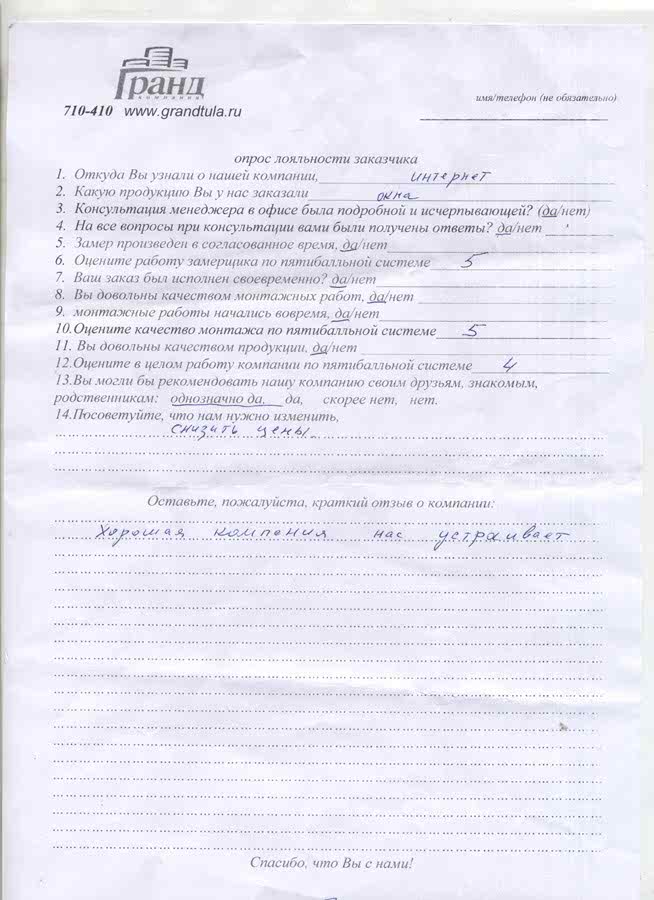 Гранд
компания
710-410 www.grandtula.ru
имя/телефон (не обязательно)
опрос лояльности заказчика
1. Откуда Вы узнали о нашей компании, интернет
2. Какую продукцию Вы у нас заказали окна
3. Консультация менеджера в офисе была подробной и исчерпывающей? (да/нет)
4. На все вопросы при консультации вами были получены ответы? да/нет
5. Замер произведен в согласованное время, да/нет
6. Оцените работу замерщика по пятибалльной системе 5
7. Ваш заказ был исполнен своевременно? да/нет
8. Вы довольны качеством монтажных работ, да/нет
9. монтажные работы начались вовремя, да/нет
10.Оцените качество монтажа по пятибалльной системе 5
11. Вы довольны качеством продукции, да/нет
12.Оцените в целом работу компании по пятибалльной системе 4
13.Вы могли бы рекомендовать нашу компанию своим друзьям, знакомым,
родственникам: однозначно да, да, скорее нет, нет.
14.Посоветуйте, что нам нужно изменить,
снизить цены
Оставьте, пожалуйста, краткий отзыв о компании:
Хорошая компания нас устраивает
Спасибо, что Вы с нами!